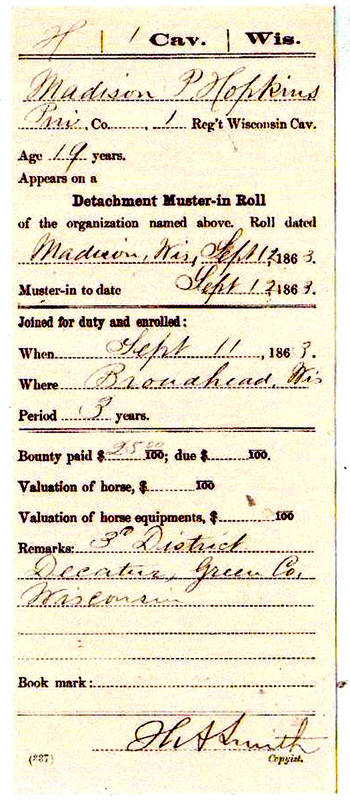 H | 1 Cav. | Wis.
Madison P. Hopkins
Pri, Co. , 1 Reg't Wisconsin Cav.
Age 19 years.
Appears on a
Detachment Muster-in Roll
of the organization named above. Roll dated
Madison, Wis, Sept 12, 1863.
Muster-in to date Sept 12, 1863.
Joined for duty and enrolled:
When Sept 11, 1863.
Where Broadhead, Wis
Period 3 years.
Bounty paid $25 00/100; due $ 100.
Valuation of horse, $ 100
Valuation of horse equipments, $ 100
Remarks: 3d District
Decatur, Green Co,
Wisconsin
Book mark:
H A Smith
(237) Copyist.